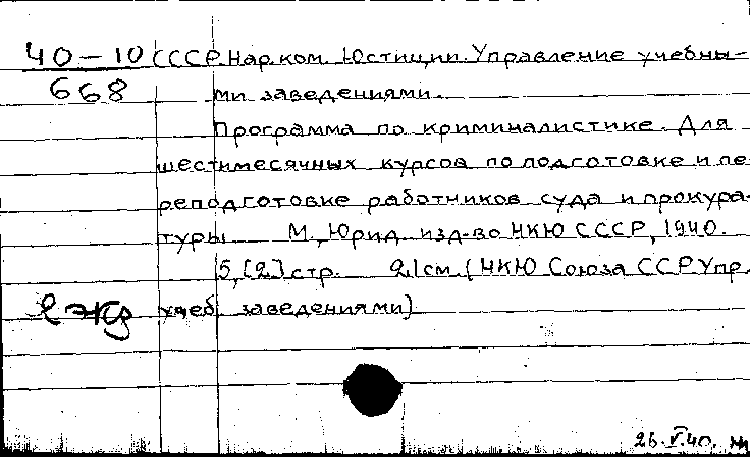 40-10 СССР. Нар. ком. Юстиции. Управление учебны-
668 ми заведениями.
Программа по криминалистике. Для
шестимесячных курсов по подготовке и пе-
реподготовке работников суда и прокура-
туры М., Юрид. изд-во НКЮ СССР, 1940.
5, [2] стр. 21 см. (НКЮ Союза ССР. Упр.
учеб. заведениями)
26.V.40.